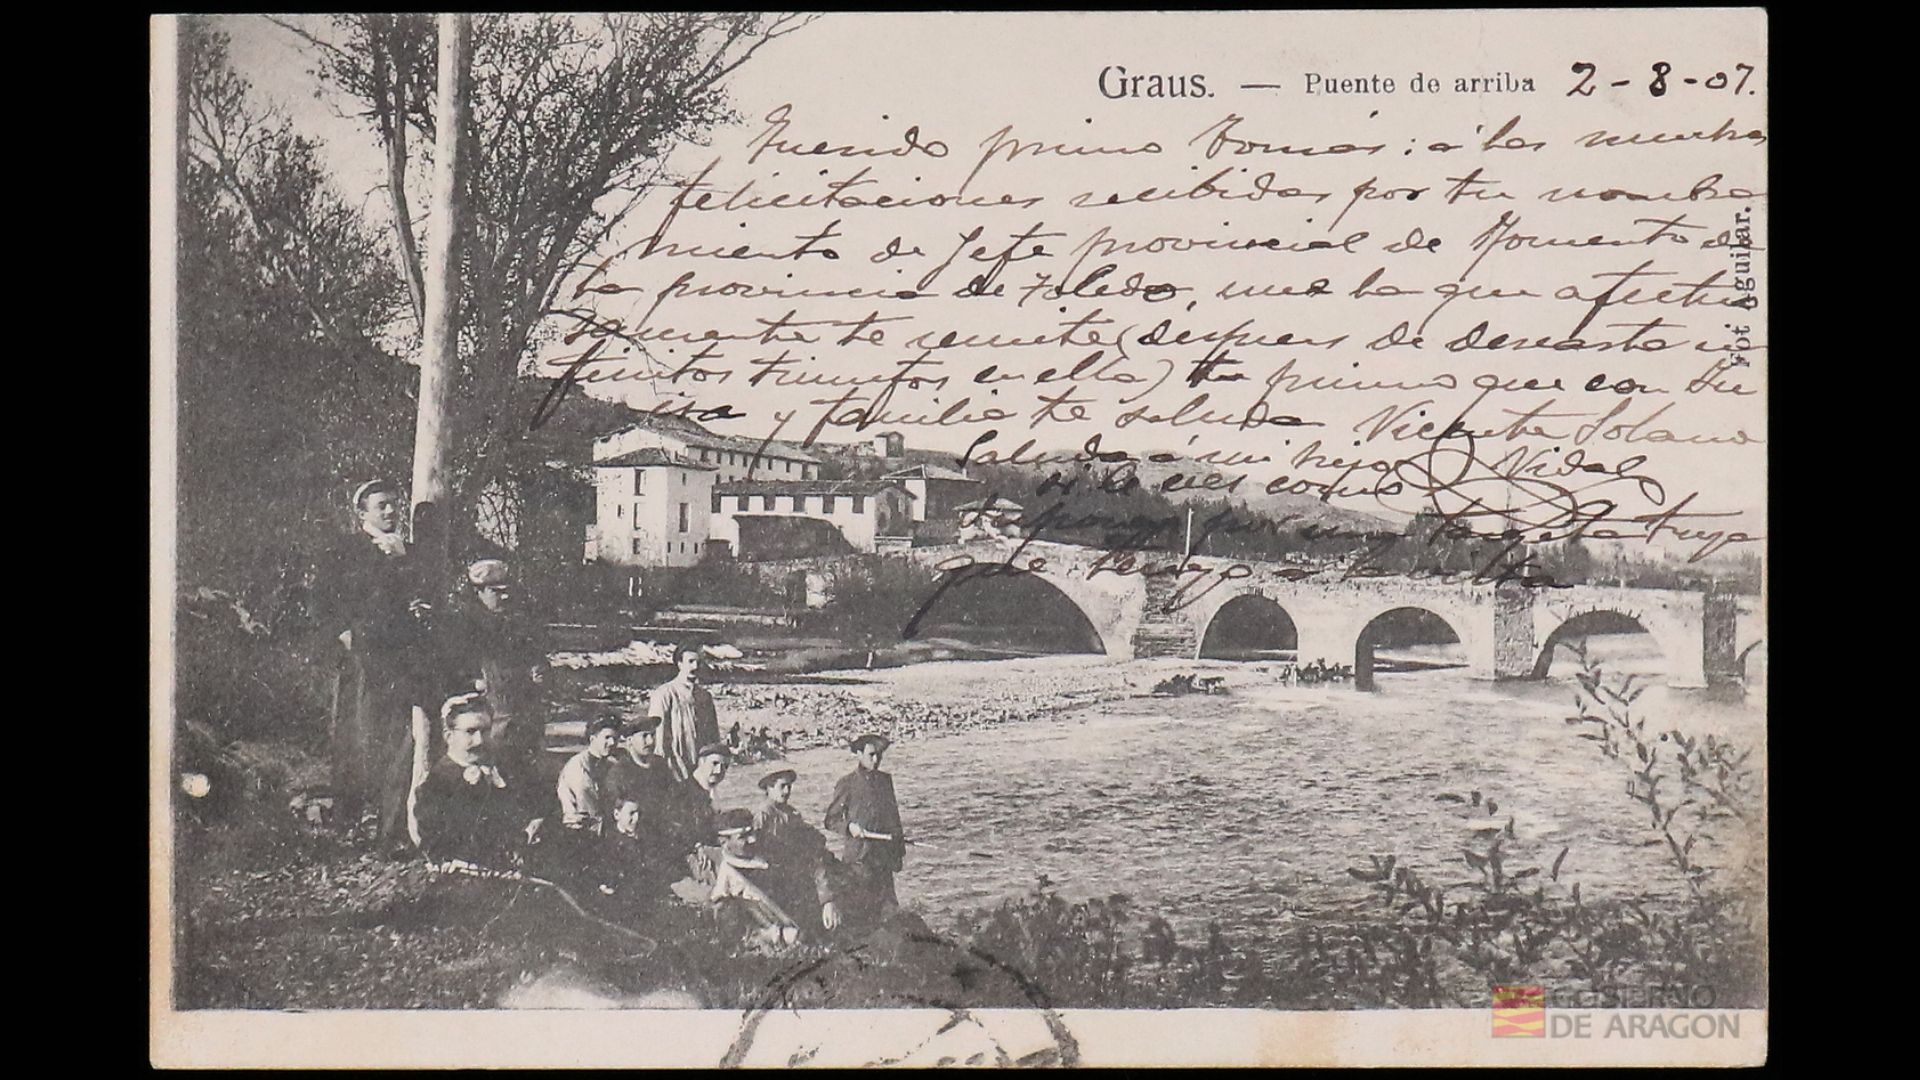 Graus. — Puente de arriba 2-8-07.
Querido primo Tomás: a las muchas
felicitaciones recibidas por tu nombra
miento de Jefe provincial de Fomento de
la provincia de Toledo, una la que afectuo
samente te remite (despues de desearte in
finitos triunfos en ella) tu primo que con Lu
isa y familia te saluda Vicente Solano
Saluda á mi hijo Vidal
si le ves como
supongo por una tarjeta suya
que tengo a la vista
Fot Aguilar.
GOBIERNO
DE ARAGON